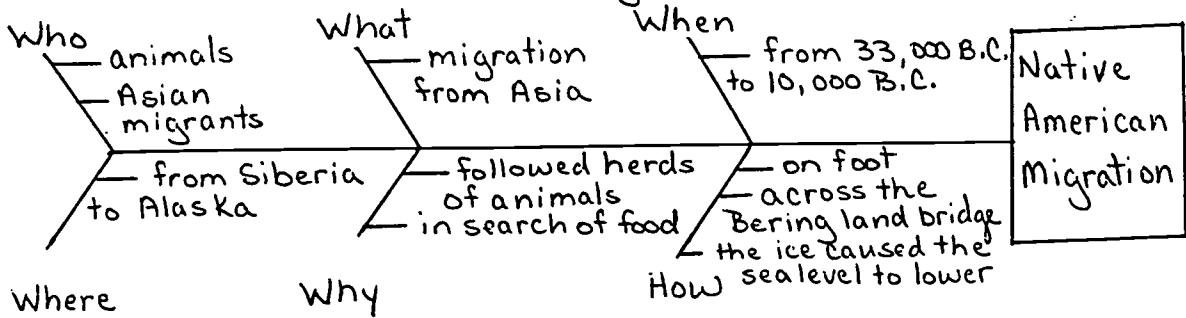 Who
animals
Asian
migrants
What
migration
from Asia
When
from 33,000 B.C.
to 10,000 B.C.
Native
American
Migration
from Siberia
to Alaska
Where
followed herds
of animals
in search of food
Why
on foot
across the
Bering land bridge
the ice caused the
sea level to lower
How